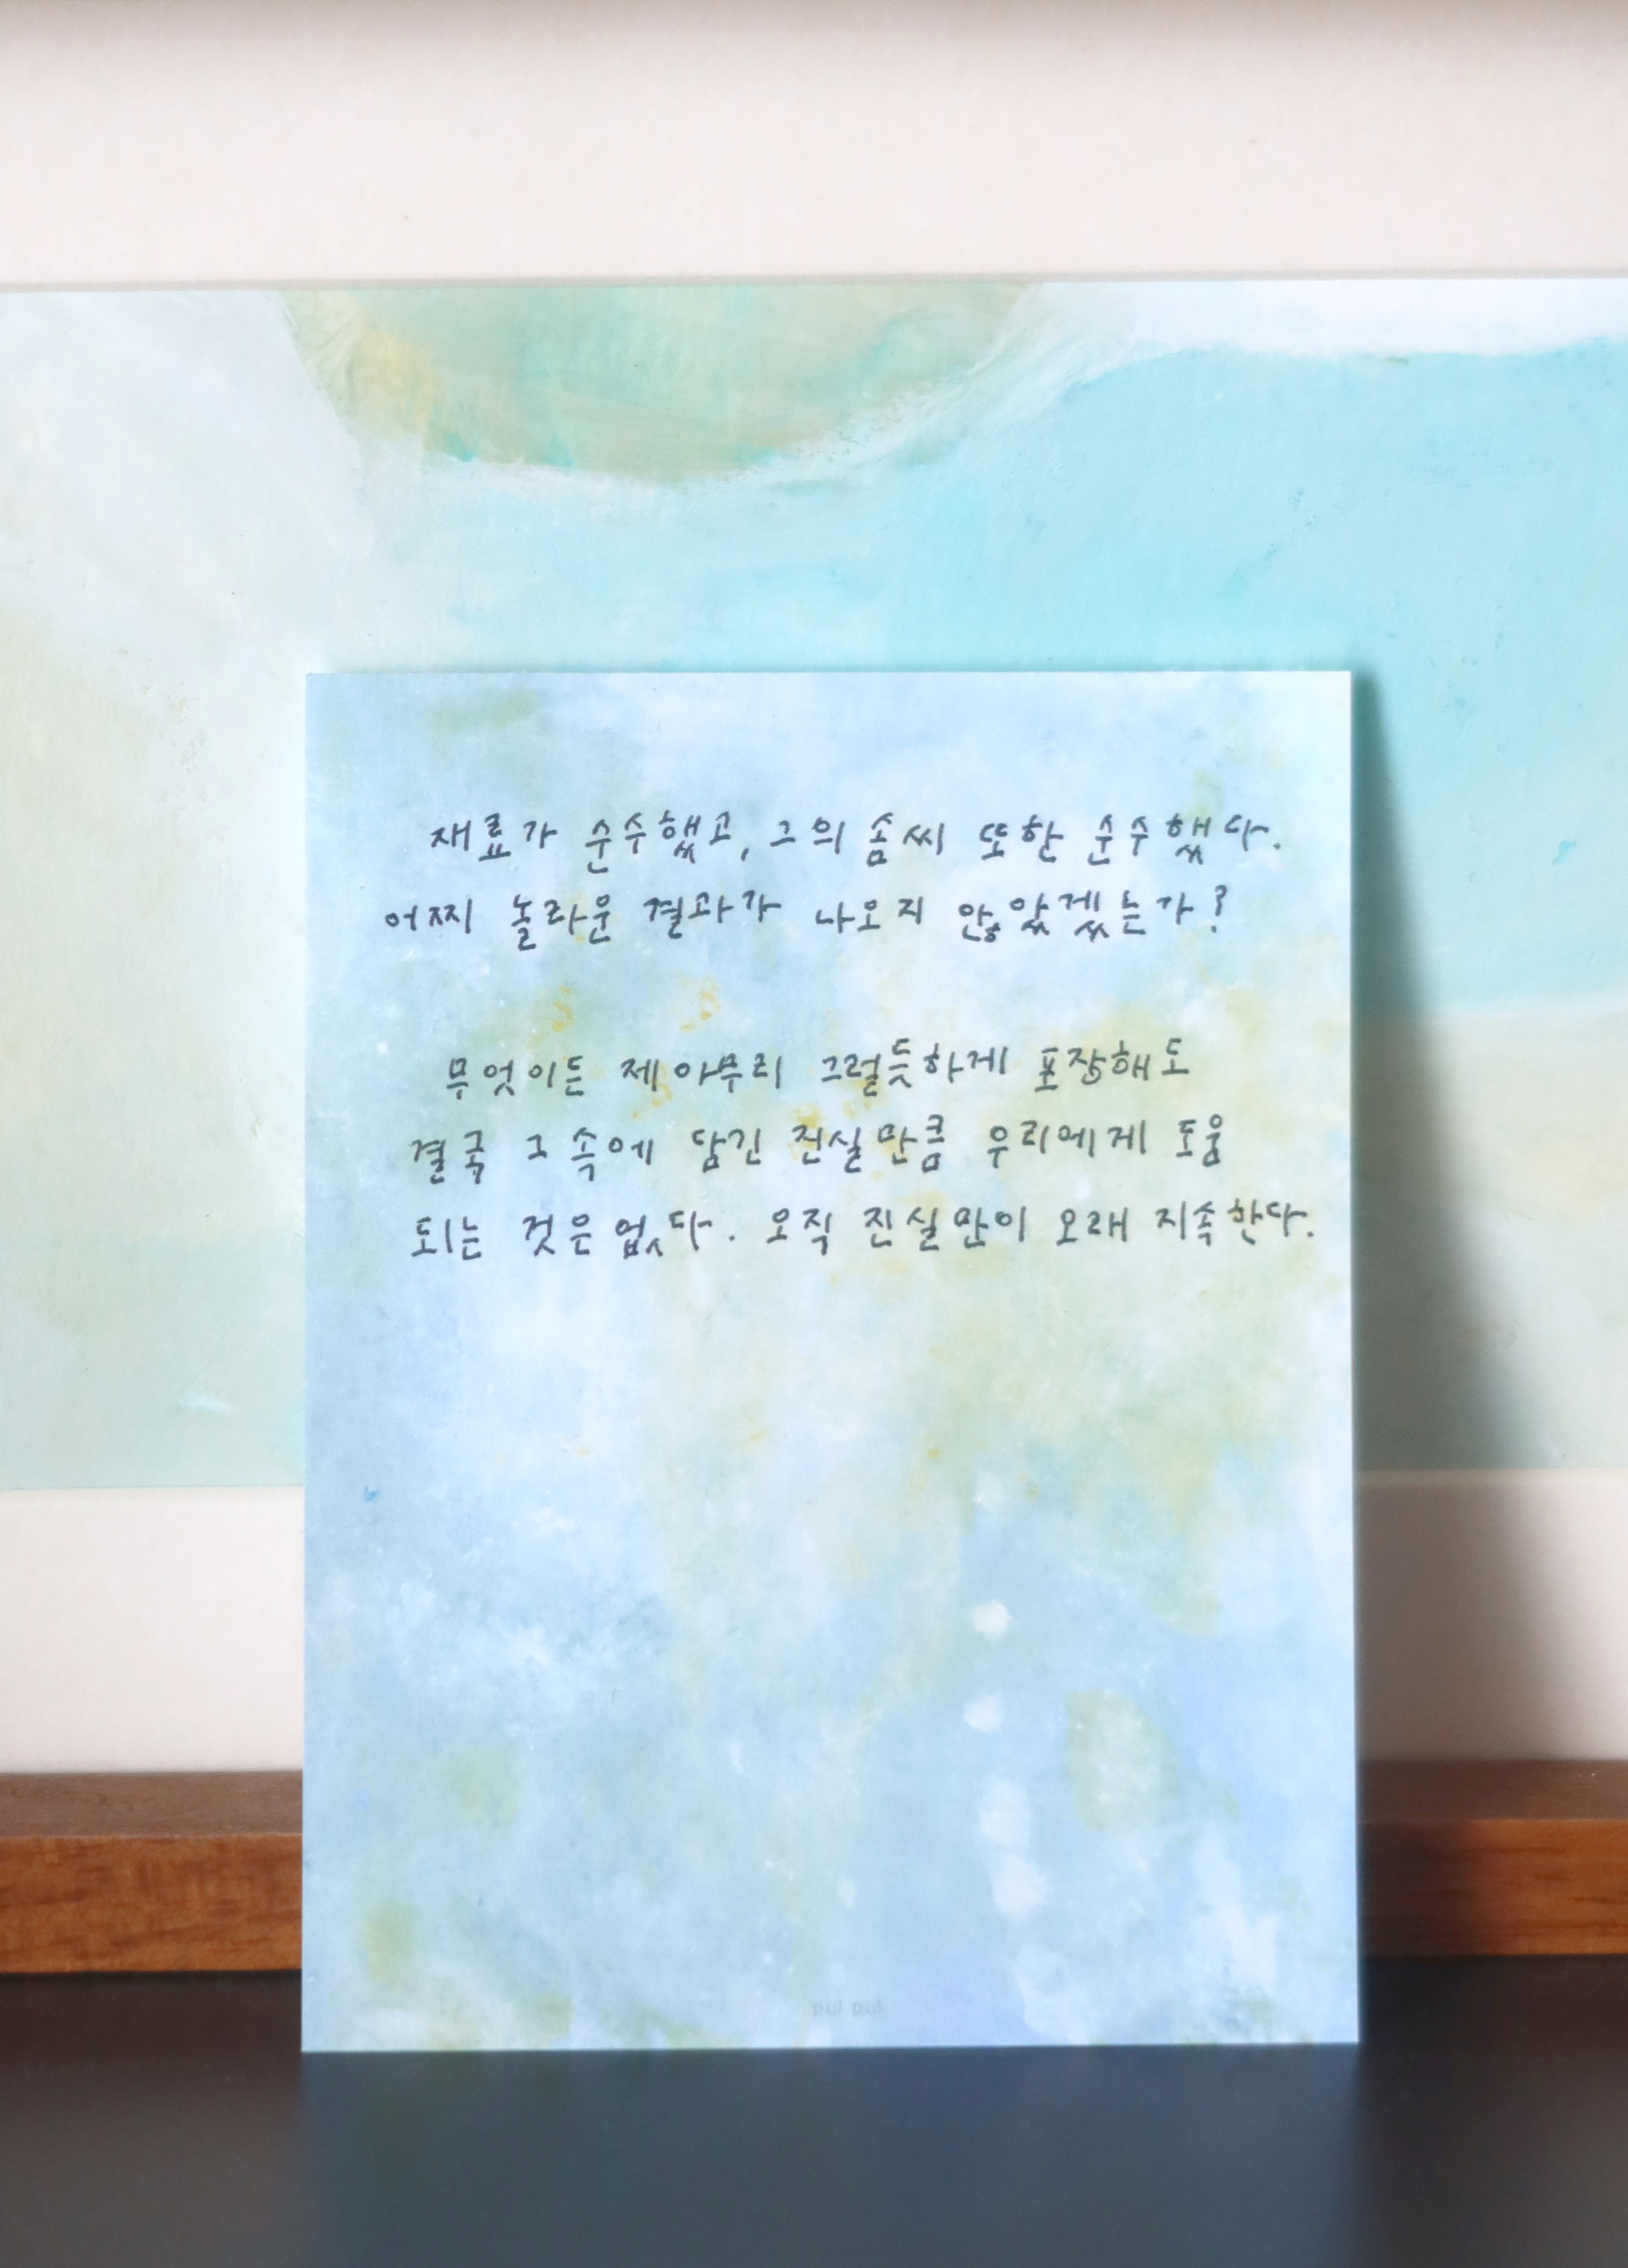 재료가 순수했고, 그의 솜씨 또한 순수했다.
어찌 놀라운 결과가 나오지 않았겠는가?
무엇이든 제아무리 그럴듯하게 포장해도
결국 그 속에 담긴 진실만큼 우리에게 도움
되는 것은 없다. 오직 진실만이 오래 지속한다.